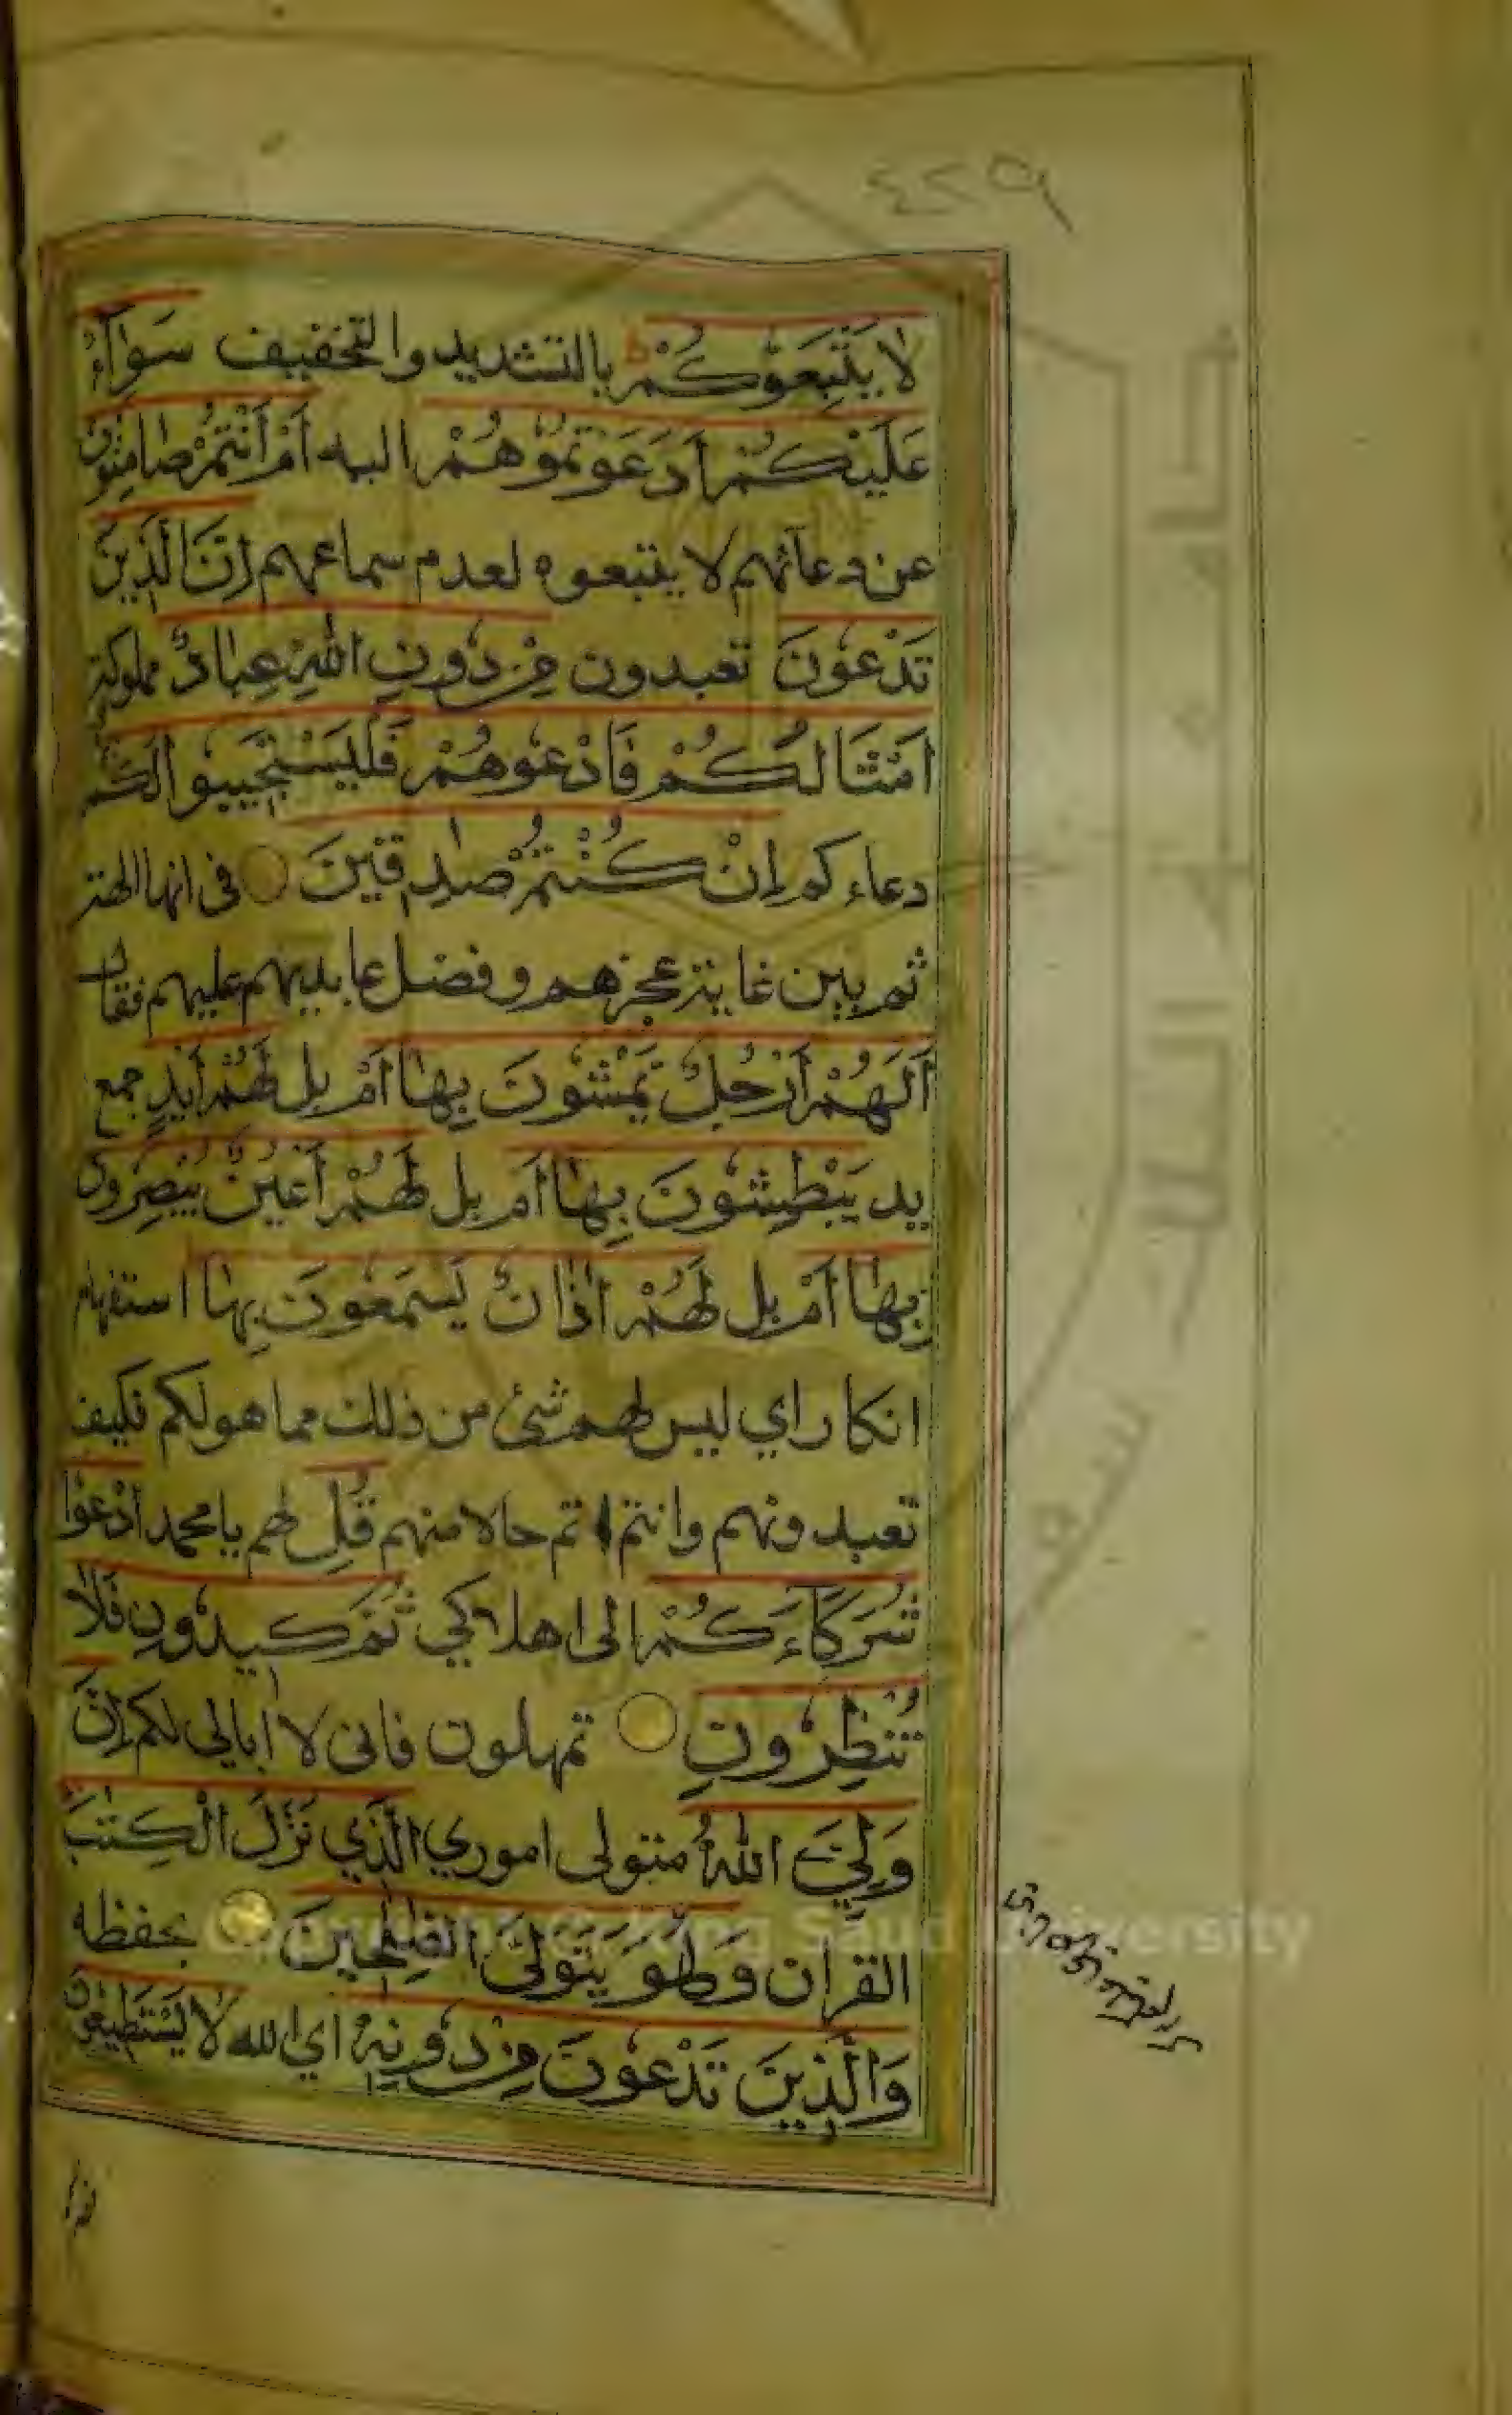 ٤٢٩
لَا يَتَّبِعُوكُمْ ط بالتشديد والتخفيف سَوَآءٌ
عَلَيْكُمْ أَدَعَوْتُمُوهُمْ اليه أَمْ أَنْتُمْ صَامِتُونَ
عن دعائهم لا يتبعوه لعدم سماعهم إِنَّ الَّذِينَ
تَدْعُونَ تعبدون مِنْ دُونِ اللهِ عِبَادٌ مملوكة
أَمْثَالُكُمْ فَادْعُوهُمْ فَلْيَسْتَجِيبُوا لَكُمْ
دعاءكم إِنْ كُنْتُمْ صٰدِقِينَ في انها الهة
ثم بين غاية عجزهم وفضل عابديهم عليهم فقال
أَلَهُمْ أَرْجُلٌ يَمْشُونَ بِهَا أَمْ بل لَهُمْ أَيْدٍ جمع
يد يَبْطِشُونَ بِهَا أَمْ بل لَهُمْ أَعْيُنٌ يُبْصِرُونَ
بِهَا أَمْ بل لَهُمْ اٰذَانٌ يَسْمَعُونَ بِهَا استفهام
انكار اي ليس لهم شئ من ذلك مما هو لكم فكيف
تعبدونهم وانتم اتم حالا منهم قُلِ لهم يا محمد ادْعُوا
شُرَكَاءَكُمْ الى اهلاكي ثُمَّ كِيدُونِ فَلَا
تُنْظِرُونِ تمهلون فانى لا ابالى لكم إِنَّ
وَلِيِّيَ اللهُ متولى اموري الَّذِي نَزَّلَ الْكِتٰبَ
القران وَهُوَ يَتَوَلَّى الصّٰلِحِينَ بحفظه
وَالَّذِينَ تَدْعُونَ مِنْ دُونِهٖ اي الله لَا يَسْتَطِيعُونَ
Copyright © King Saud University
جامعة الملك سعود